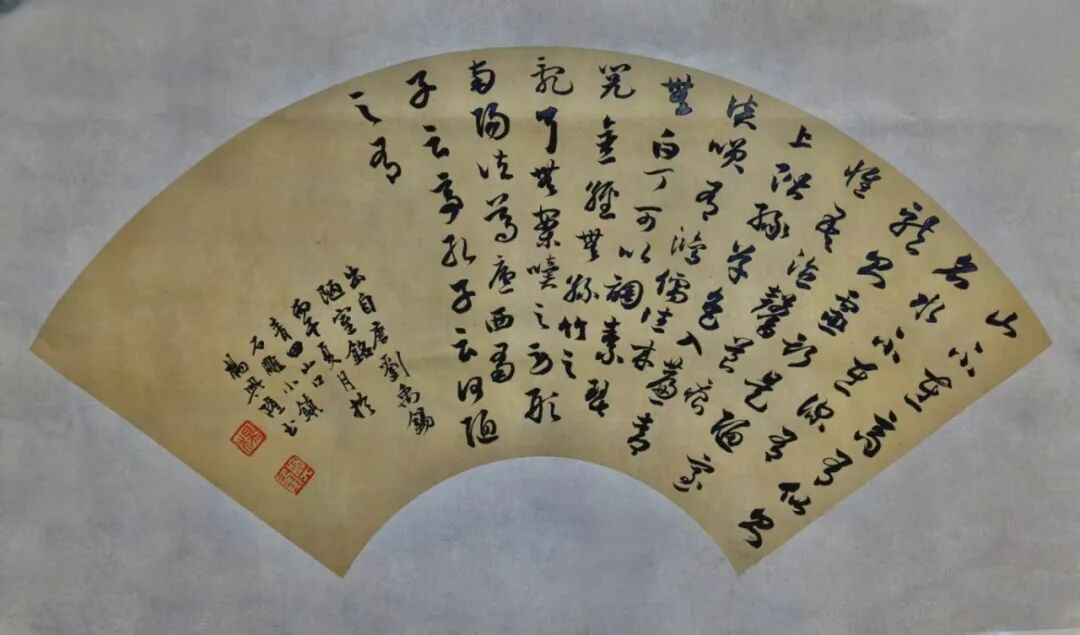 山不在高有仙則
名水不在深有
龍則靈斯是陋室
惟吾德馨苔痕
上階緑草色入簾青
談笑有鴻儒往來
無白丁可以調素琴
閱金經無絲竹之
亂耳無案牘之勞形
南陽諸葛廬西蜀
子云亭孔子云何陋
之有
出自唐劉禹錫
陋室銘
丙午夏月於
青田山口鎮
石雕小
楊 書